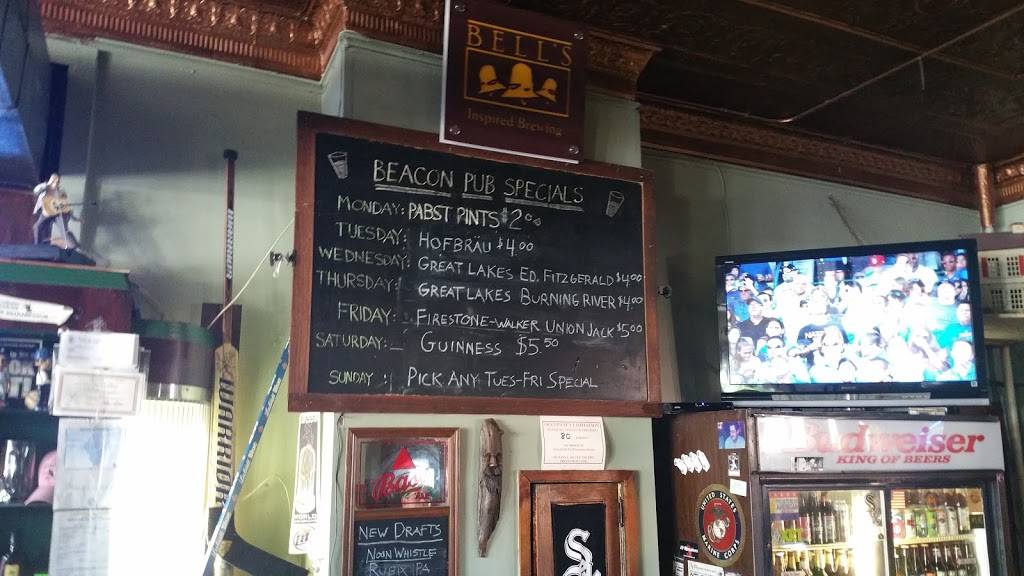 BELL'S
Inspired Brewing
BEACON PUB SPECIALS
MONDAY: PABST PINTS $2.00
TUESDAY: HOFBRÄU $4.00
WEDNESDAY: GREAT LAKES ED. FITZGERALD $4.00
THURSDAY: GREAT LAKES BURNING RIVER $4.00
FRIDAY: FIRESTONE-WALKER UNION JACK $5.00
SATURDAY: GUINNESS $5.50
SUNDAY: PICK ANY TUES-FRI SPECIAL
WARRIOR
Bass
NEW DRAFTS
NOON WHISTLE
RUBIX PA
80
Sox
Budweiser
KING OF BEERS
UNITED STATES
MARINE CORPS